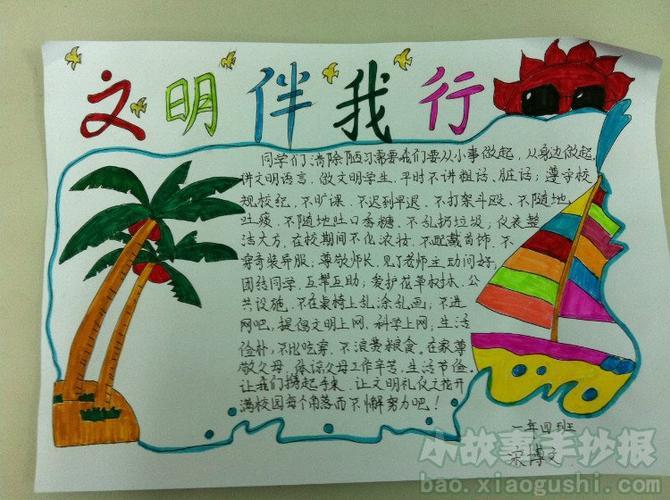 文明伴我行
同学们清除陋习需要我们要从小事做起,从身边做起。
讲文明语言,做文明学生,平时不讲粗话、脏话;遵守校
规校纪,不旷课、不迟到早退、不打架斗殴、不随地
吐痰、不随地吐口香糖、不乱扔垃圾;仪表整
洁大方,在校期间不化浓妆、不配戴首饰、不
穿奇装异服、尊敬师长,见了老师主动问好,
团结同学,互帮互助;爱护花草树林、公
共设施,不在桌椅上乱涂乱画;不进
网吧,提倡文明上网,科学上网;生活
俭朴,不比吃穿,不浪费粮食。在家尊
敬父母,体谅父母工作辛苦,生活节俭。
让我们携起手来,让文明礼仪之花开
满校园每个角落而不懈努力吧!
一年四班
梁博文
小故事手抄报
bao.xiaogushi.com